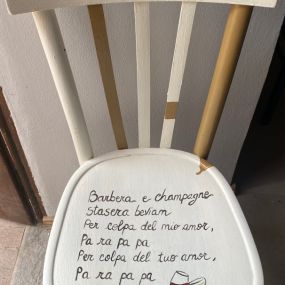 Barbera e champagne
stasera beviam
Per colpa del mio amor,
Pa ra pa pa
Per colpa del tuo amor,
Pa ra pa pa